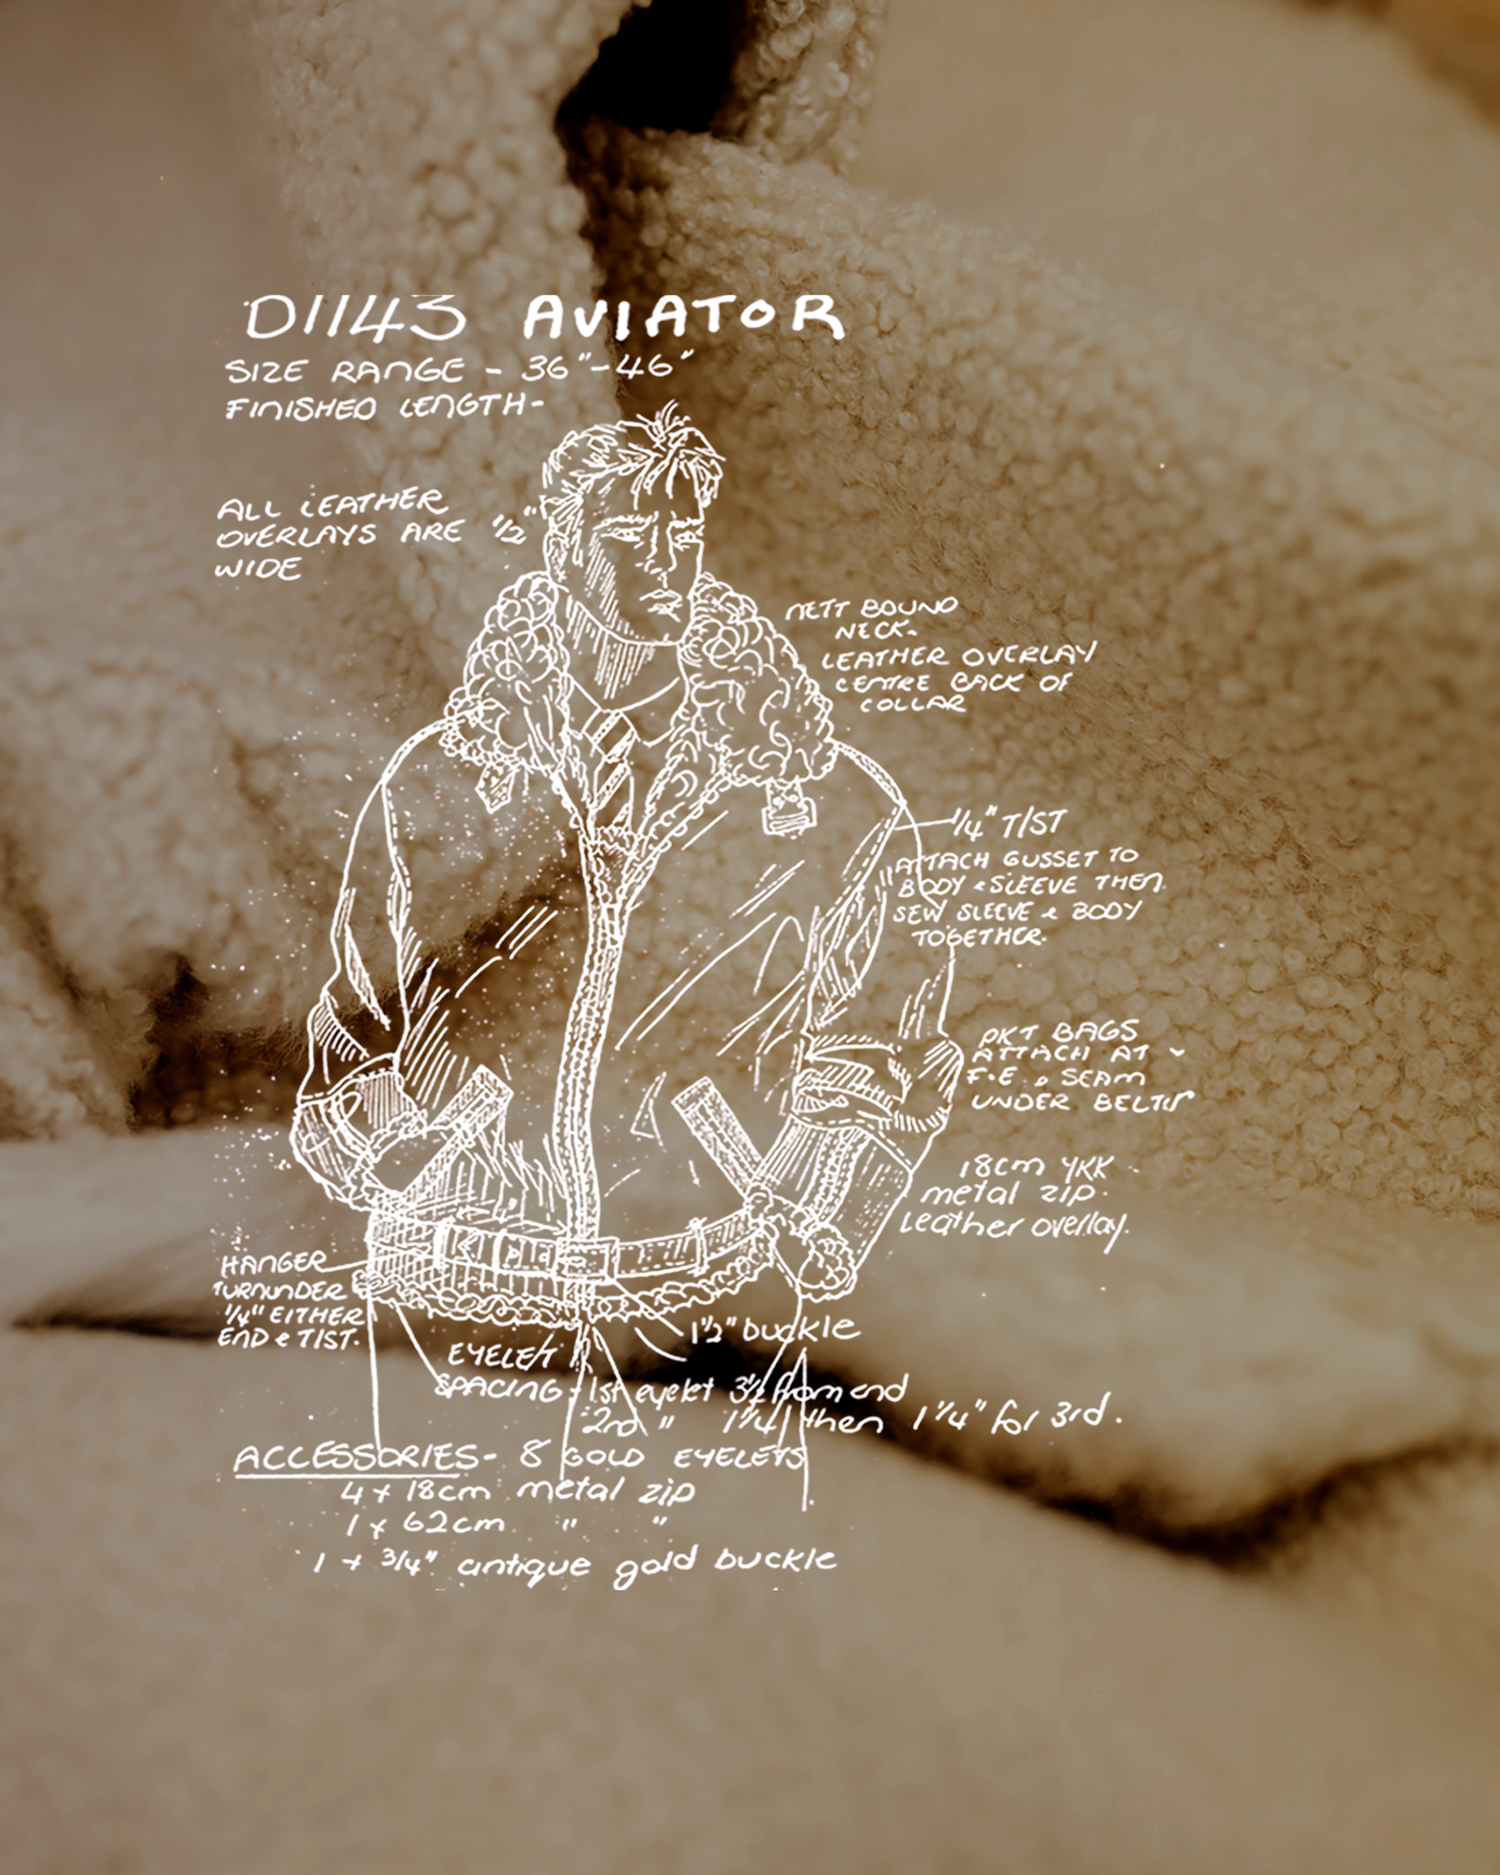 D1143 AVIATOR
SIZE RANGE - 36"-46"
FINISHED LENGTH-
ALL LEATHER
OVERLAYS ARE 1/2"
WIDE
NETT BOUND
NECK.
LEATHER OVERLAY
CENTRE BACK OF
COLLAR
1/4" T/ST
ATTACH GUSSET TO
BODY & SLEEVE THEN
SEW SLEEVE & BODY
TOGETHER.
PKT BAGS
ATTACH AT
F.E. & SEAM
UNDER BELT
18cm YKK
metal zip.
Leather overlay.
HANGER
TURNUNDER
1/4" EITHER
END & T/ST.
1 1/2" buckle
EYELET
SPACING - 1st eyelet 3 1/2 from end
2nd " 1 1/4 then 1 1/4" for 3rd.
ACCESSORIES- 8 GOLD EYELETS
4 x 18cm metal zip
1 x 62cm " "
1 x 3/4" antique gold buckle